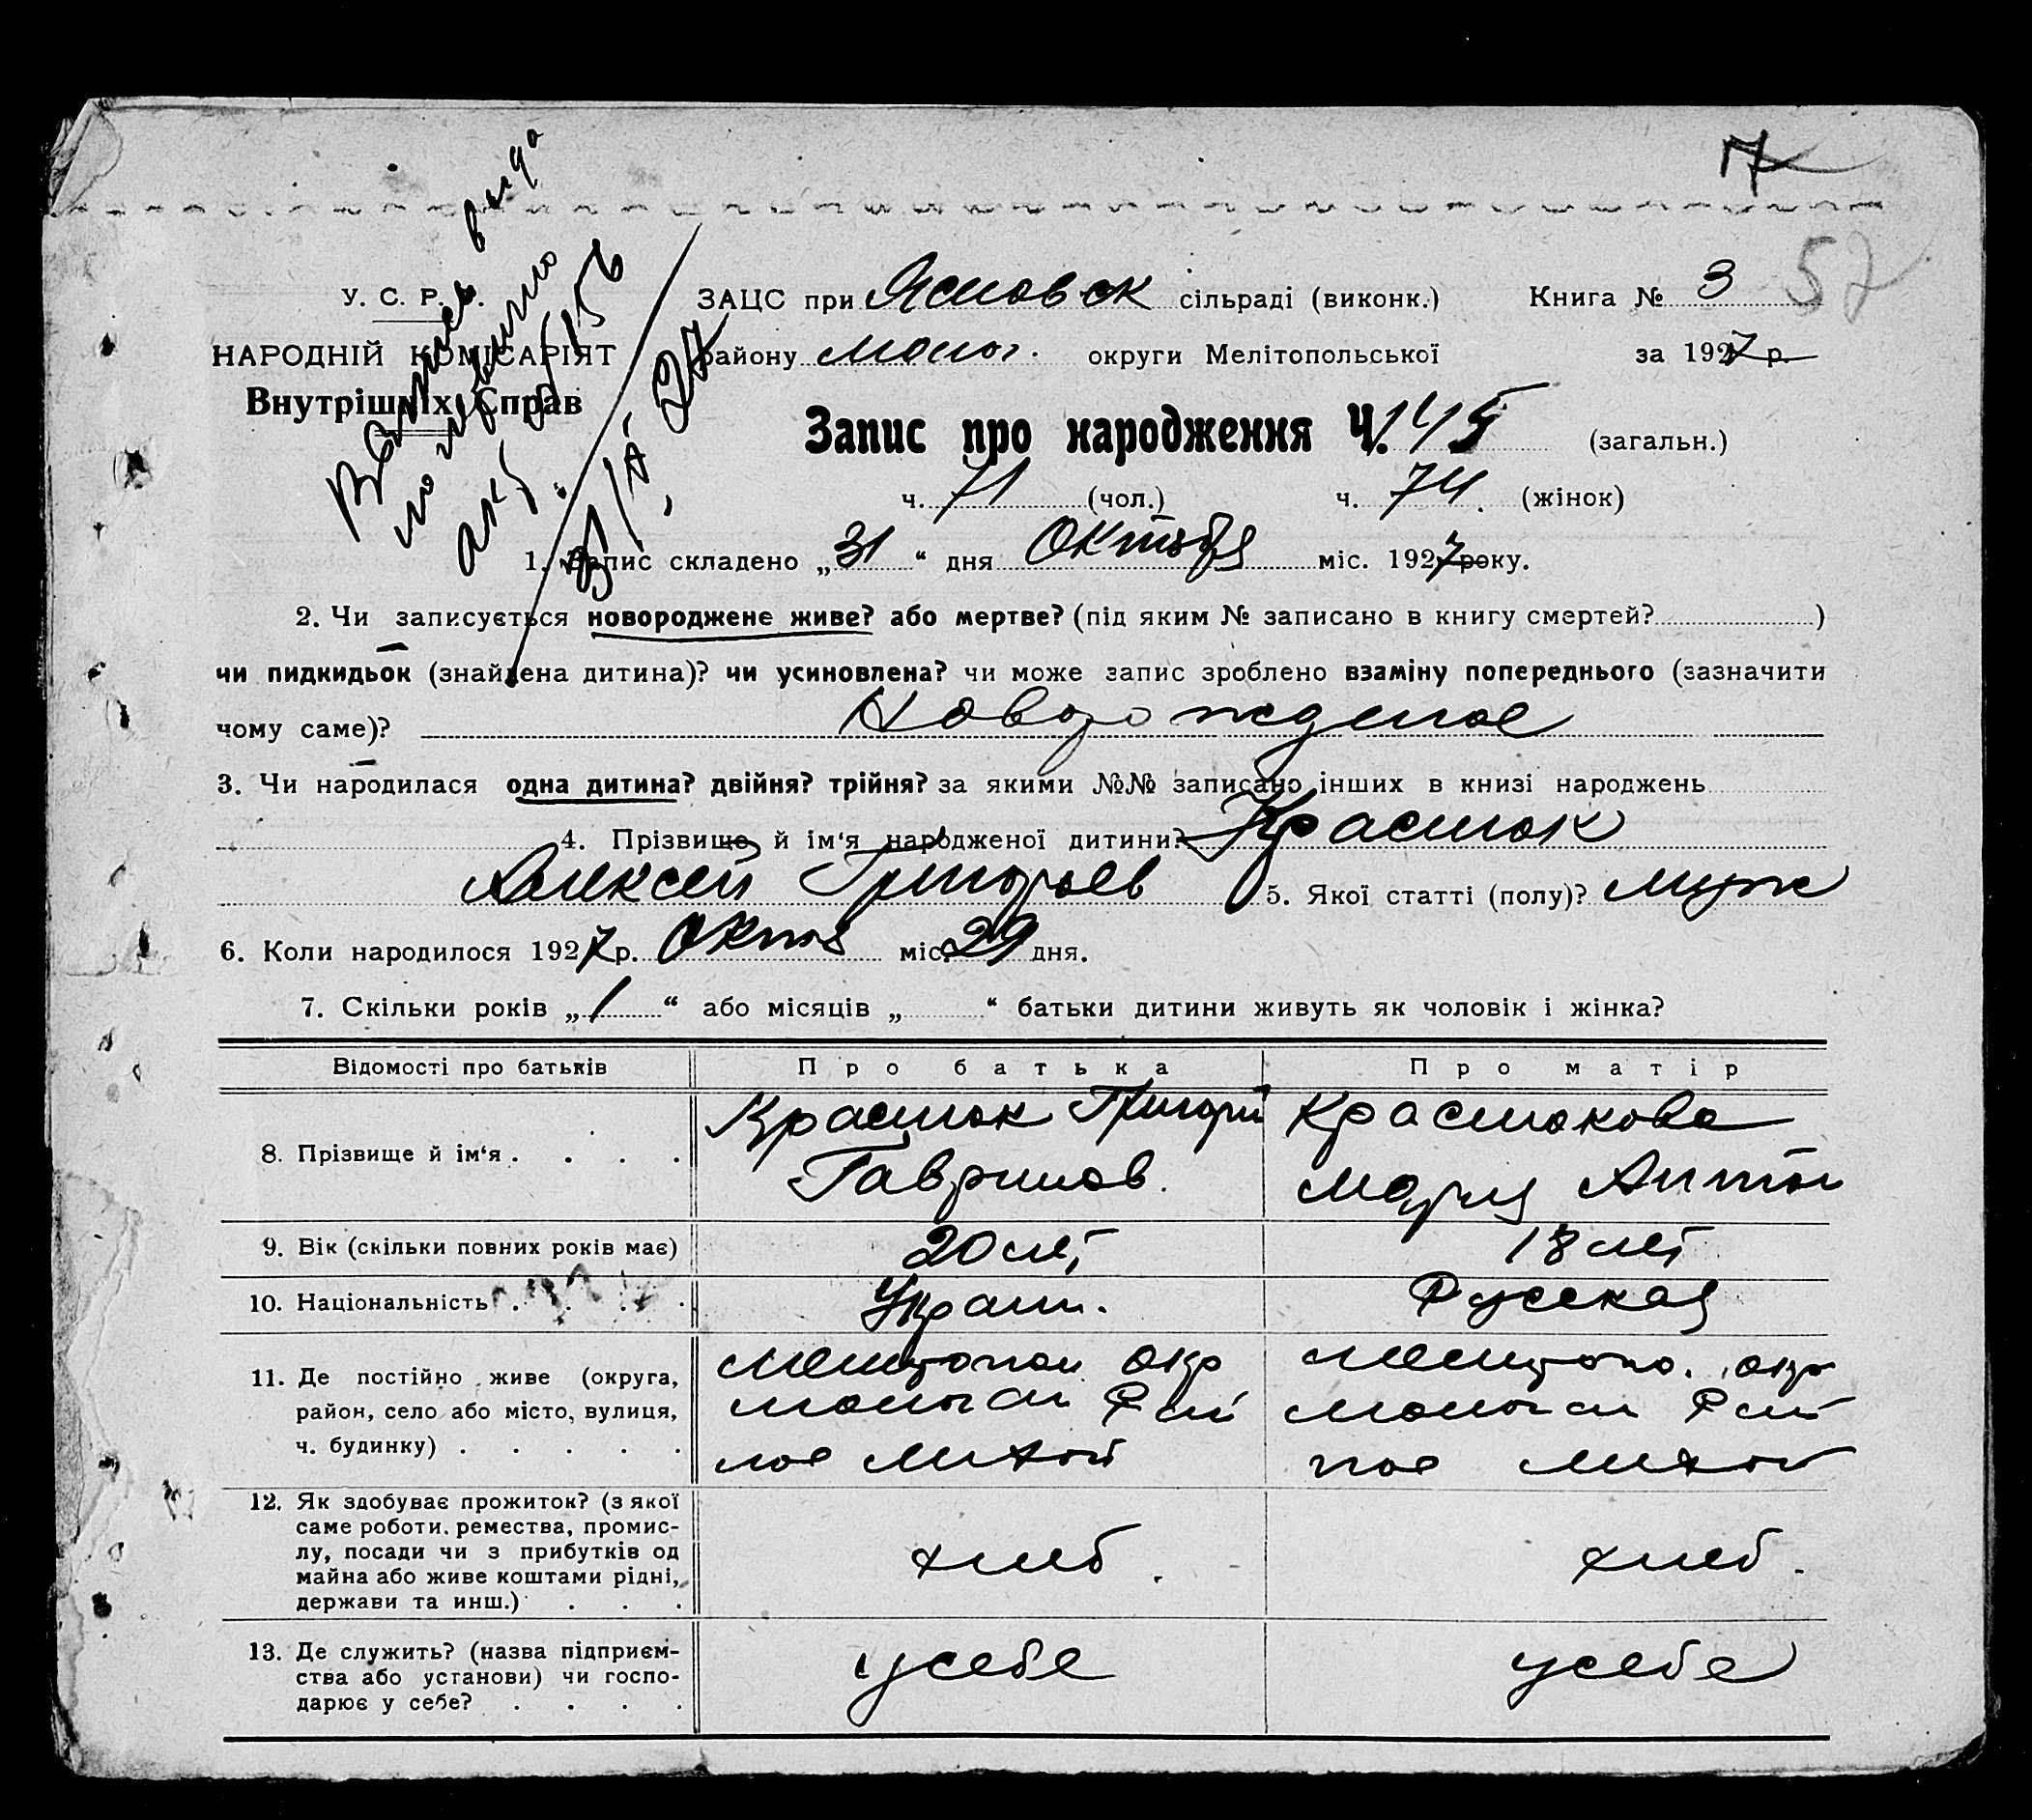 7
57
У. С. Р. Р.
НАРОДНІЙ КОМІСАРІЯТ
Внутрішніх Справ
31/X-27
ЗАЦС при Ясновск сільраді (виконк.) Книга № 3
району Молоч. округи Мелітопольської за 1927 р.
Запис про народження Ч. 145 (загальн.)
ч. 71 (чол.) ч. 74. (жінок)
1. Запис складено „31“ дня Октября міс. 1927 року.
2. Чи записується новороджене живе? або мертве? (під яким № записано в книгу смертей? )
чи пидкидьок (знайдена дитина)? чи усиновлена? чи може запис зроблено взаміну попереднього (зазначити
чому саме)? Новорожденое
3. Чи народилася одна дитина? двійня? трійня? за якими №№ записано інших в книзі народжень
4. Прізвище й ім‘я народженої дитини? Краснюк
Алексей Григорьев 5. Якої статті (полу)? муж
6. Коли народилося 1927 р. Октя міс. 29 дня.
7. Скільки років „1“ або місяців „ “ батьки дитини живуть як чоловік і жінка?
Відомості про батьків Про батька Про матір
8. Прізвище й ім‘я . . . . Краснюк Григорий Краснюкова
Гаврилов. Мария Антон
9. Вік (скільки повних років має) 20 лет 18 лет
10. Національність . . . . Украин. Русская
11. Де постійно живе (округа, Мелитопол окр Мелитопо. окр
район, село або місто, вулиця, Молочан Рай Молочан Рай
ч. будинку) . . . . . пос
12. Як здобуває прожиток? (з якої
саме роботи, ремества, промис-
лу, посади чи з прибутків од хлеб. хлеб.
майна або живе коштами рідні,
держави та инш.) . . .
13. Де служить? (назва підприєм-
ства або установи) чи госпо- усебе усебе
дарює у себе? . . . .